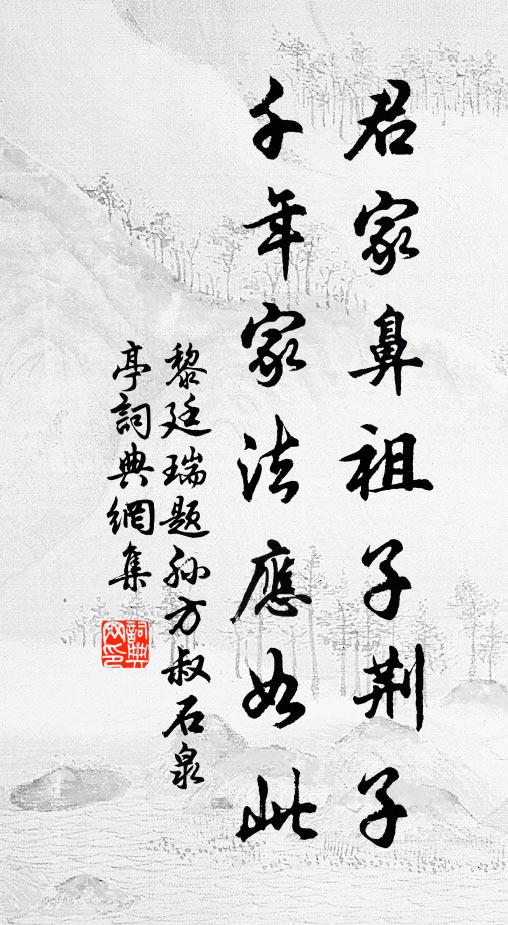 君家鼻祖子荆子
千年家法應如此
黎廷瑞題孙方叔石泉
亭詞典網集
詞典
网印